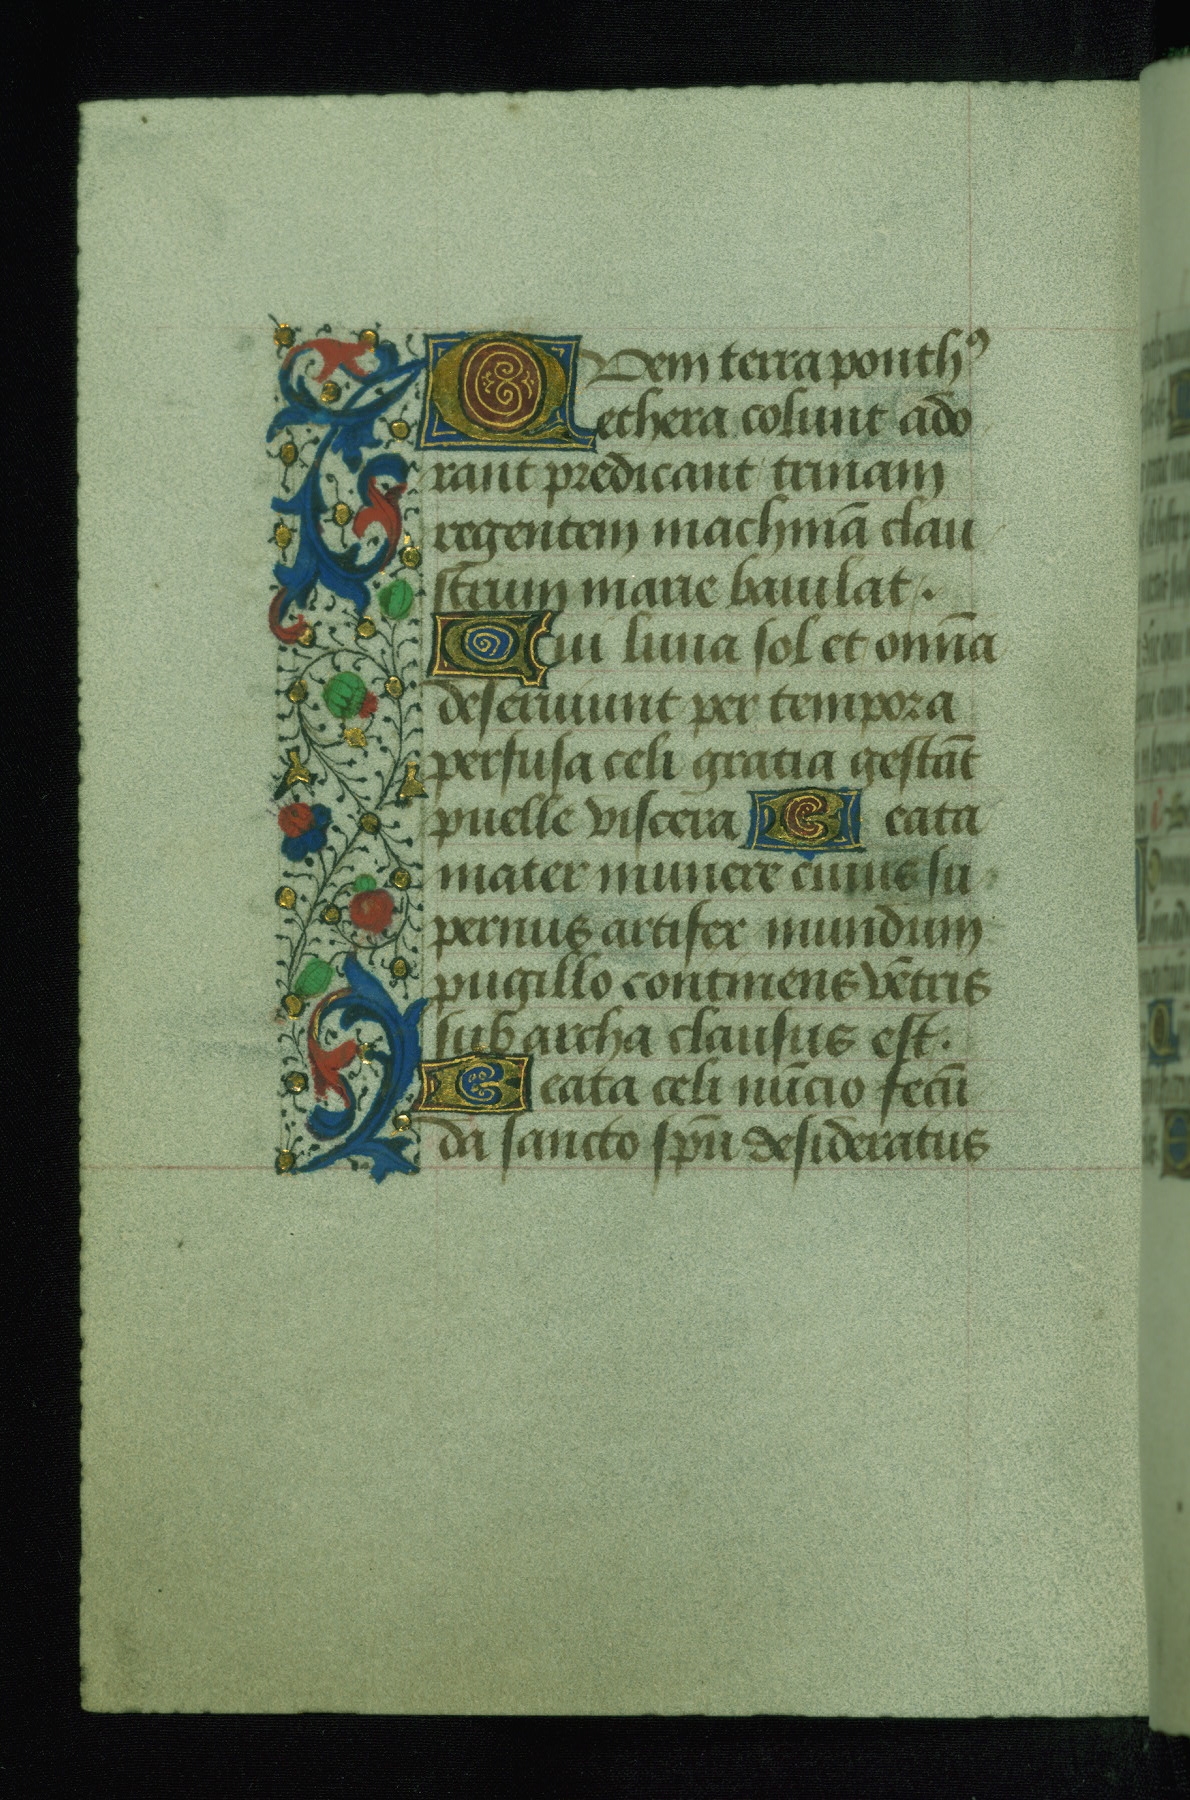 Quem terra ponthꝰ
ethera colunt ado
rant predicant trinam
regentem machinā clau
strum marie baiulat.
Cui luna sol et omīa
deseruiunt per tempora
perfusa celi gratia gestāt
puelle viscera Beata
mater munere cuius su
pernus artifex mundum
pugillo continens vētris
sub archa clausus est.
Beata celi nūcio fecū
da sancto sp̄u desideratus